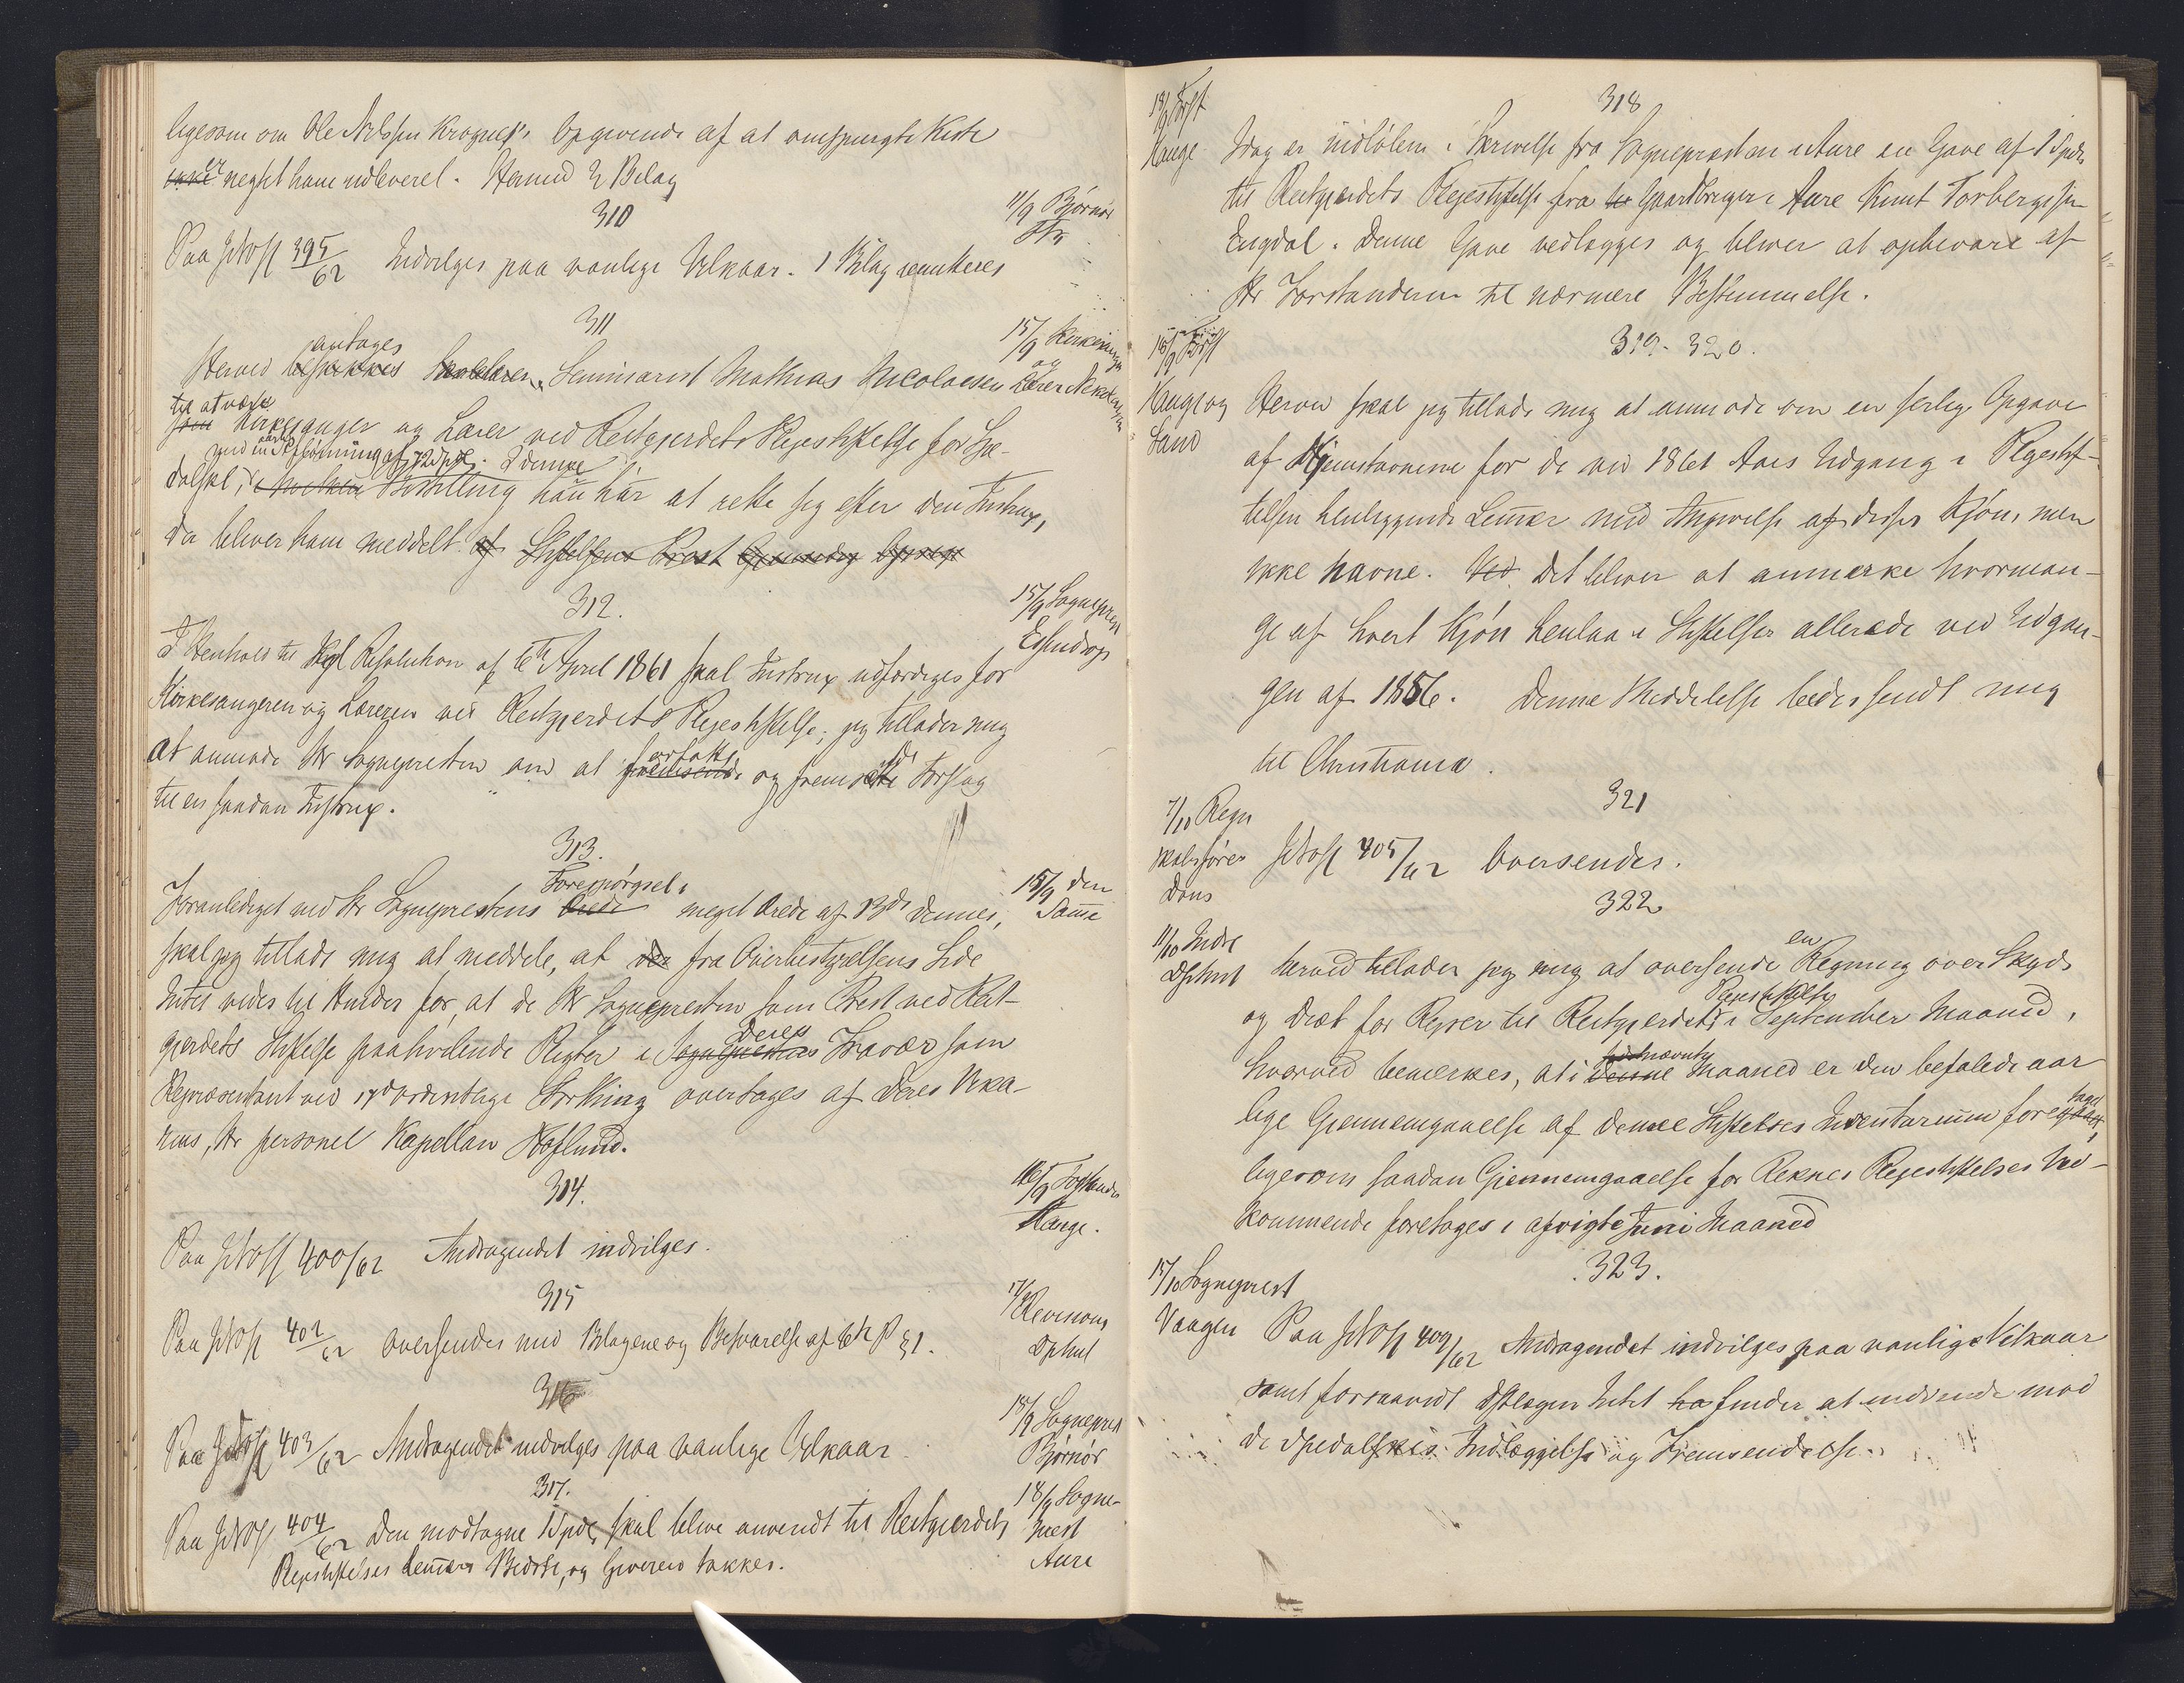 ligesom om Ole Nilssen Opgivende af at omspurgte Kiste
ikke er negtet ham udleveret. Hermed 2 Bilag
310
11/9 Bjørnør
Paa JNo 395/62 Indvilges paa vanlige Vilkaar. 1 Bilag remitteres
311
15/9 Kirkesanger og Lærer
antages
Herved beskikkes Seminarist Mathias Nicolaesen
til at være
som Kirkesanger og Lærer ved Reitgjerdets Plejestiftelse for Spe-
med en aarlig Lønning af 72 Spd. I denne
dalske, i hvilken Bestilling han har at rette sig efter den Instrux,
der bliver ham meddelt af Stiftelsens Prest
312.
15/9 Sogneprest
I Henhold til Kgl Resolution af 6te April 1861 skal Instrux udfærdiges for
Kirkesangeren og Læreren ved Reitgjerdets Plejestiftelse; jeg tillader mig
at anmode Hr Sognepresten om at forfatte og fremsende Forslag
til en saadan Instrux.
313.
15/9 den Samme
Forespørgsel i
Foranlediget ved Hr Sogneprestens meget ærede af 13de dennes,
skal jeg tillade mig at meddele, at der fra Overbestyrelsens Side
Intet vides til Hinder for, at de Hr Sognepresten som Prest ved Reit-
gjerdets Stiftelse paahvilende Pligter i Deres Fravær som
Repræsentant ved 17de ordentlige Storthing overtages af Deres Vika-
rius, Hr personel Kapellan Hoflund.
314.
16/9 Forstander
Hauge.
Paa JNo 400/62 Andragendet indvilges.
315
17/9 Revisions
Dptmt
Paa JNo 402/62 oversendes med Bilagene og Besvarelse af 6te P § 1.
316
18/9 Sogneprest
Bjørnør
Paa JNo 403/62 Andragendet indvilges paa vanlige Vilkaar
317.
18/9 Sogne-
prest
Aure
Paa JNo 404/62 Den modtagne 1 Spd, skal blive anvendt til Reitgjerdets
Plejestiftelses Lemmers Bedste, og Giveren takkes.
18/9 Forst
Hauge
318
Idag er indløben i Skrivelse fra Sognepresten i Aure en Gave af 1 Spd
til Reitgjerdets Plejestiftelse fra Gaardbruger i Aure Knut Torbergsen
Engdal. Denne Gave vedlægges og bliver at opbevare af
Hr Forstanderen til nærmere Bestemmelse.
18/9 Forst
Hauge og
Sand
319-320.
Herved skal jeg tillade mig at anmode om en særlig Opgave
af Hjemstavnene for de ved 1861 Aars Udgang i Plejestif-
telsen henliggende Lemmer med Angivelse af disses Kjøn, men
ikke Navne. Ved Det bliver at anmærke hvorman-
ge af hvert Kjøn henlaa i Stiftelsen allerede ved Udgan-
gen af 1856. Denne Meddelelse bedes sendt mig
til Christiania.
7/10 Regn
skabsfører
Dons
321
JNo 405/62 Oversendes.
322
11/10 Indre
Dptmt
Herved tillader jeg mig at oversende en Regning over Skyds
og Diæt for Rejser til Reitgjerdets Plejestiftelse i September Maaned,
hvorved bemærkes, at i sidstnævnte denne Maaned er den befalede aar
lige Gjennemgaaelse af denne Stiftelses Inventarium foretaget,
ligesom saadan Gjennemgaaelse for Reknes Plejestiftelses Ved-
kommende foretoges i afvigte Juni Maaned
323.
15/10 Sogneprest
Vaagen
Paa JNo 409/62 Andragendet indvilges paa vanlige Vilkaar
samt forsaavidt Dlægen Intet finder at indvende mod
de Spedalskes Indlæggelse og Fremsendelse.